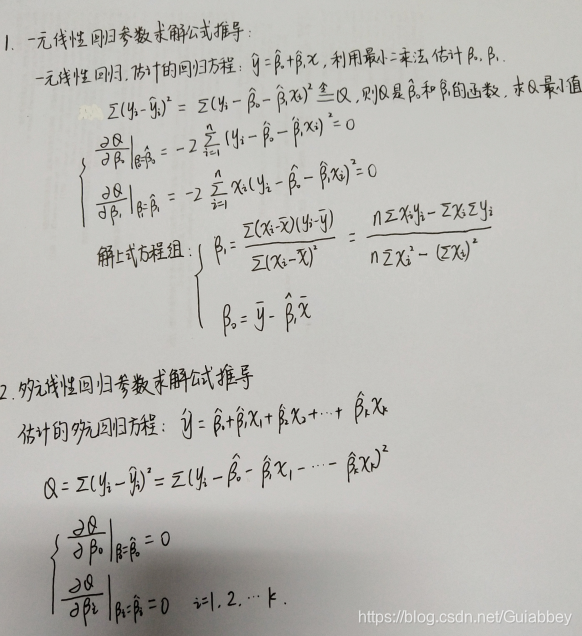 1. 一元线性回归参数求解公式推导:
一元线性回归,估计的回归方程: ŷ=β̂₀+β̂₁x, 利用最小二乘法估计β₀, β₁.
Σ(yᵢ-ŷᵢ)² = Σ(yᵢ-β̂₀-β̂₁xᵢ)² ≙ Q, 则Q是β̂₀和β̂₁的函数, 求Q最小值
∂Q/∂β₀|β₀=β̂₀ = -2 Σⁿᵢ₌₁ (yᵢ-β̂₀-β̂₁xᵢ)² = 0
∂Q/∂β₁|β₁=β̂₁ = -2 Σⁿᵢ₌₁ xᵢ(yᵢ-β̂₀-β̂₁xᵢ)² = 0
解上式方程组: { β₁ = Σ(xᵢ-x̄)(yᵢ-ȳ) / Σ(xᵢ-x̄)² = nΣxᵢyᵢ-ΣxᵢΣyᵢ / nΣxᵢ²-(Σxᵢ)²
β₀ = ȳ - β̂₁x̄
2. 多元线性回归参数求解公式推导
估计的多元回归方程: ŷ=β̂₀+β̂₁x₁+β̂₂x₂+…+β̂ₖxₖ
Q = Σ(yᵢ-ŷᵢ)² = Σ(yᵢ-β̂₀-β̂₁x₁-…-β̂ₖxₖ)²
∂Q/∂β₀|β₀=β̂₀ = 0
∂Q/∂βᵢ|βᵢ=β̂ᵢ = 0 i=1,2,…k.
https://blog.csdn.net/Guiabbey